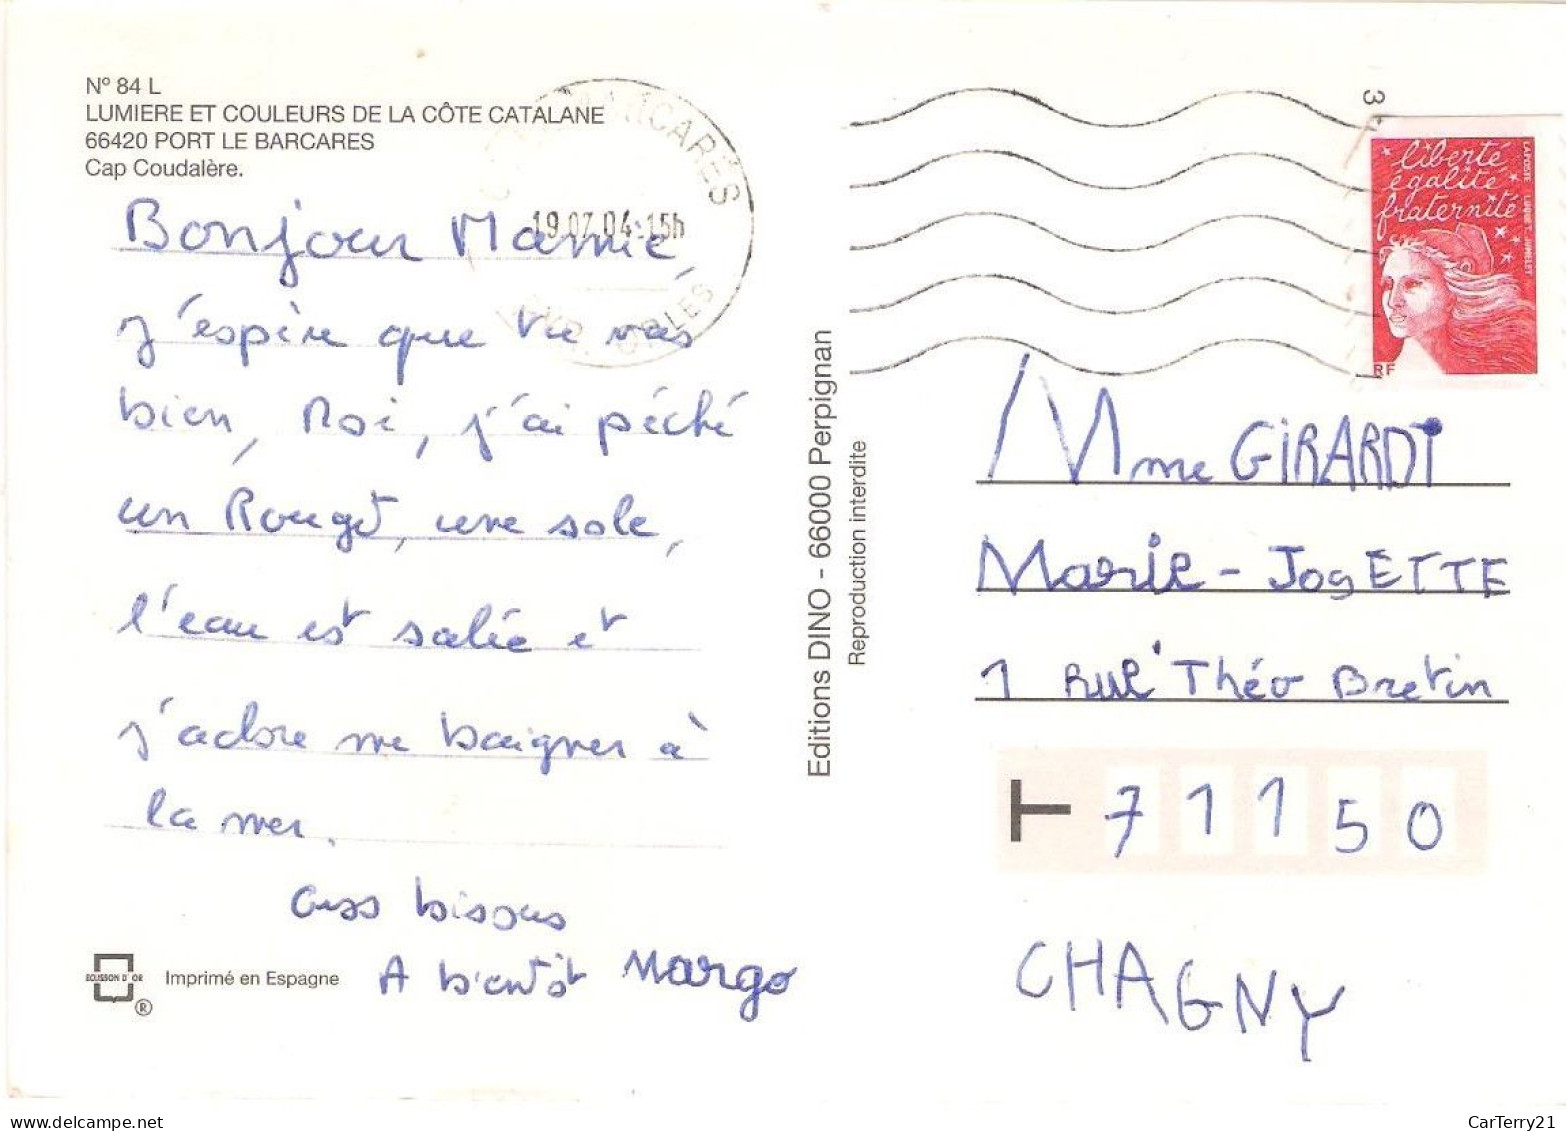 N° 84 L
LUMIERE ET COULEURS DE LA CÔTE CATALANE
66420 PORT LE BARCARES
Cap Coudalère.
BARCARÉS
19.07.04 15h
Bonjour Mamie,
j'espère que tu vas
bien, Moi, j'ai péché
un Rouget, une sole,
l'eau est salée et
j'adore me baigner à
la mer.
bisous
A bientôt Margo
ECUSSON D'OR
®
Imprimé en Espagne
Editions DINO - 66000 Perpignan
Reproduction interdite
3
liberté
égalité
fraternité
LA POSTE LUQUET JUMELET
RF
Mme GIRARDI
Marie-JosETTE
1 Rue Théo Bretin
T 71150
CHAGNY
CarTerry21